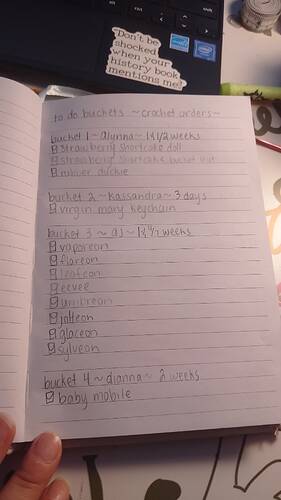 Don't be
shocked
when your
history book
mentions me!
to do buckets ~crochet orders~
bucket 1 ~ alynna ~ 1 1/2 weeks
strawberry shortcake doll
strawberry shortcake bucket hat
rubber duckie
bucket 2 ~ kassandra ~ 3 days
virgin mary keychain
bucket 3 ~ aj ~ weeks
vaporeon
flareon
leafeon
eevee
umbreon
jolteon
glaceon
sylveon
bucket 4 ~ dianna ~ 2 weeks
baby mobile